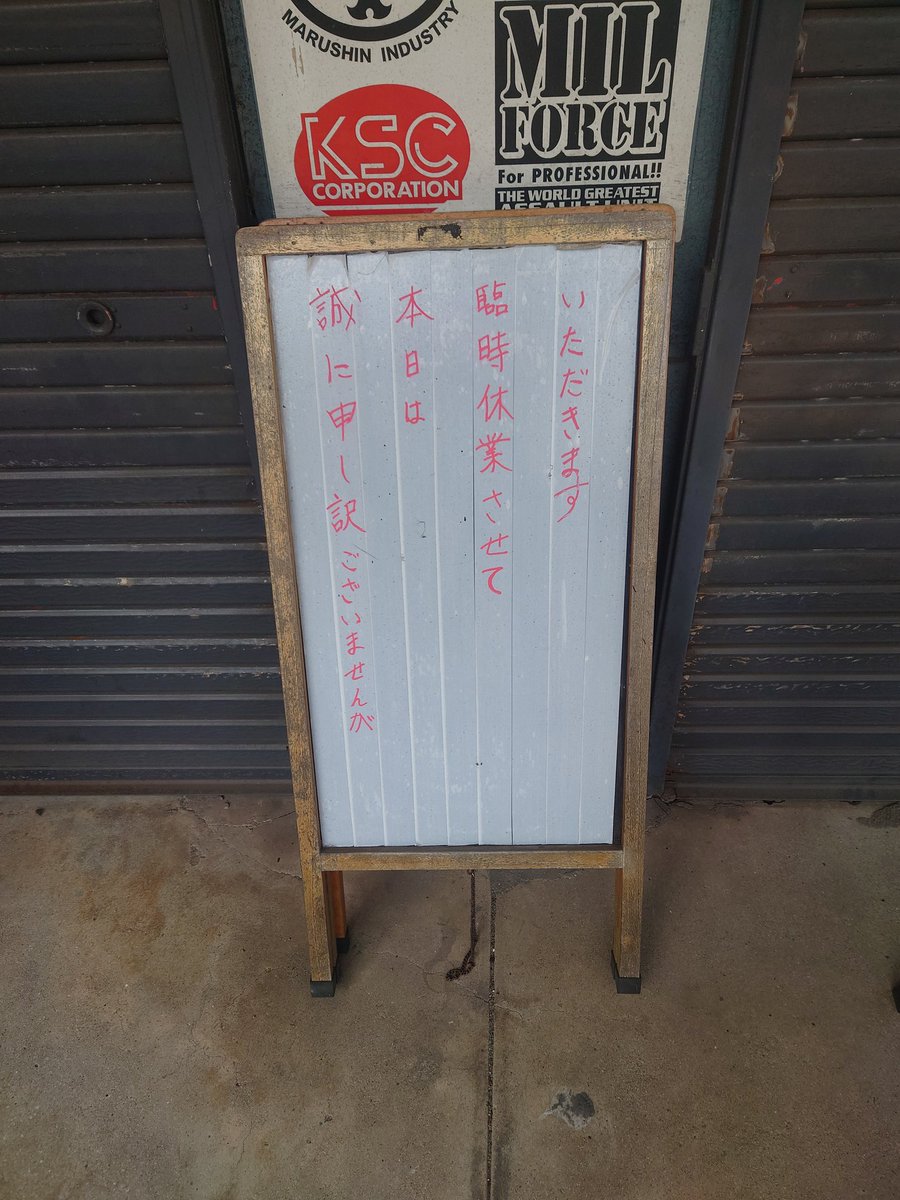 MARUSHIN INDUSTRY
KSC
CORPORATION
MIL
FORCE
For PROFESSIONAL!!
THE WORLD GREATEST
ASSAULT UNIT
誠に申し訳ございませんが
本日は
臨時休業させて
いただきます